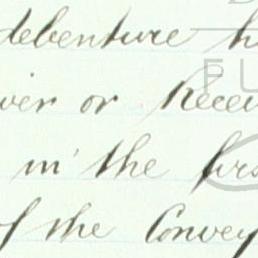 debenture h
iver or Recei
in the firs
of the Convey